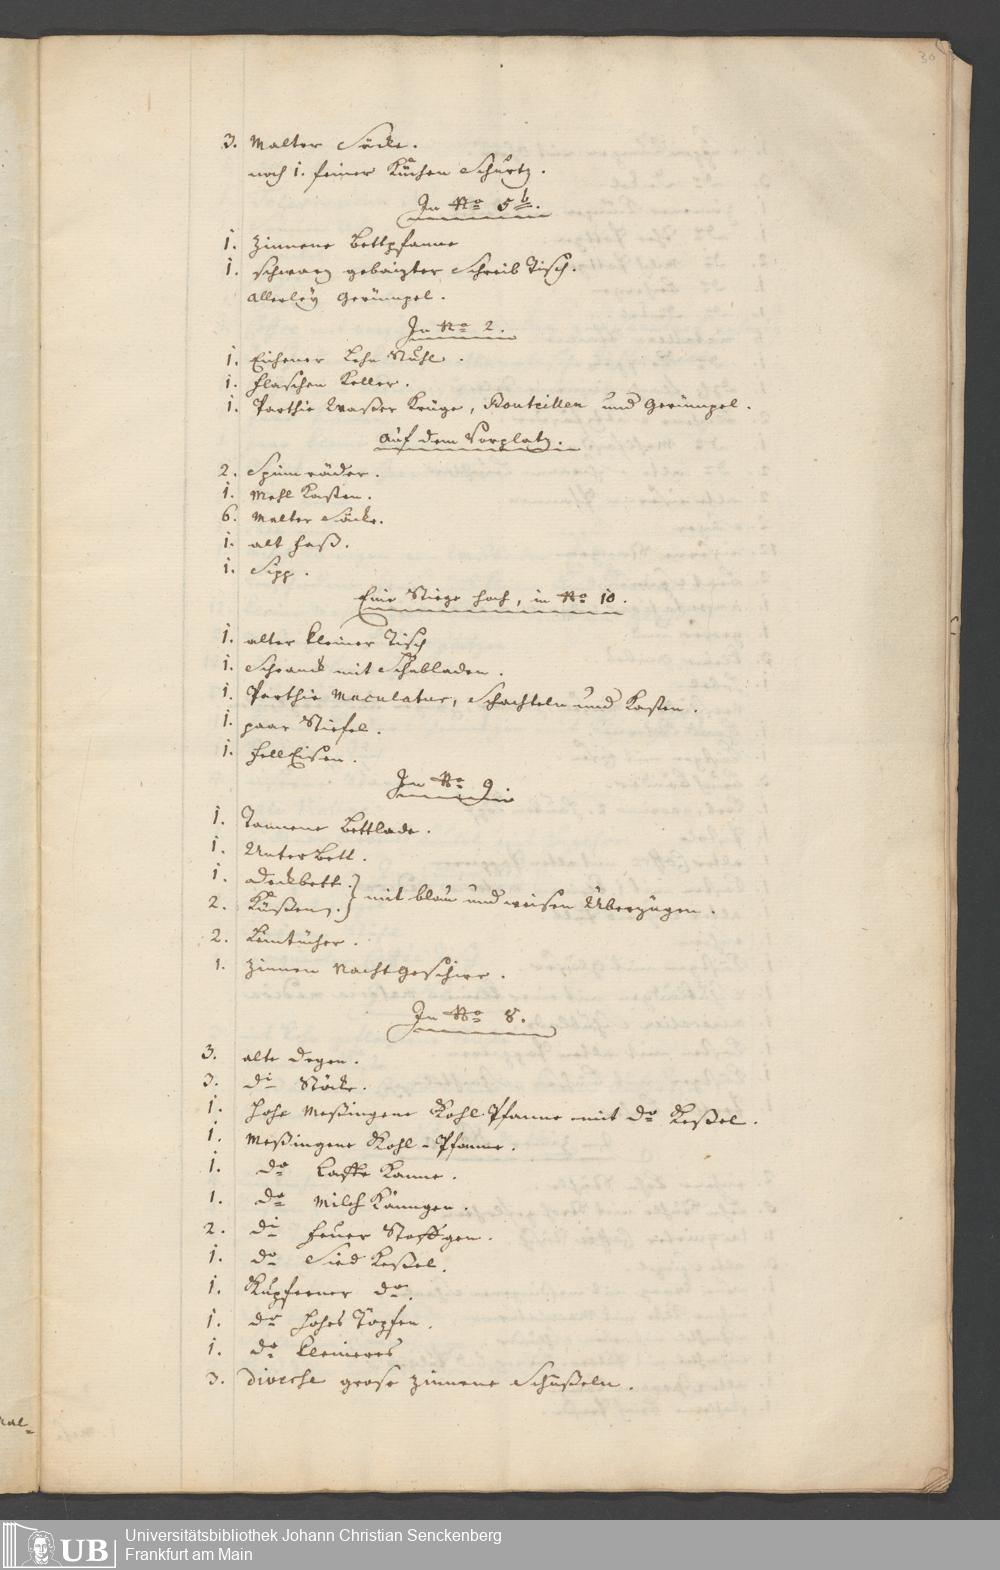 30
3. Malter Säcke.
noch 1. feiner Küchen Schurtz.
In No 5 b.
1. Zinnene Bettpfanne
1. schwarz gebaizter Schreib Tisch.
allerleÿ Gerümpel.
In No 2.
1. Eichener Lehn Stuhl.
1. Flaschen Keller.
1. Parthie Waßer Krüge, Bouteillen und Gerümpel.
Auf dem Vorplatz.
2. Spinn räder.
1. Mehl Kasten.
6. Malter Säcke.
1. alt Faß.
1. Sipp.
Eine Stiege hoch, in No 10.
1. alter kleiner Tisch
1. Schranck mit Schubladen.
1. Parthie Maculatur, Schachteln und Kasten.
1. paar Stiefel.
1. FellEisen.
In No 9.
1. Tannene Bettlade.
1. UnterBett.
1. Deckbett.
2. Küßen. } mit blau und weisen Überzügen.
2. Leintücher.
1. Zinnen NachtGeschirr.
In No 8.
3. alte Degen.
3. di Stöcke.
1. hohe Meßingene Kohl-Pfanne mit do Keßel.
1. Meßingene Kohl-Pfanne.
1. do Caffe Kanne.
1. do Milch Känngen.
2. di Feuer Stöffgen.
1. do Sied Keßel.
1. Kupferner do.
1. do hohes Töpfen.
1. do kleineres
3. Diverse grose zinnene Schüßeln.
UB
Universitätsbibliothek Johann Christian Senckenberg
Frankfurt am Main